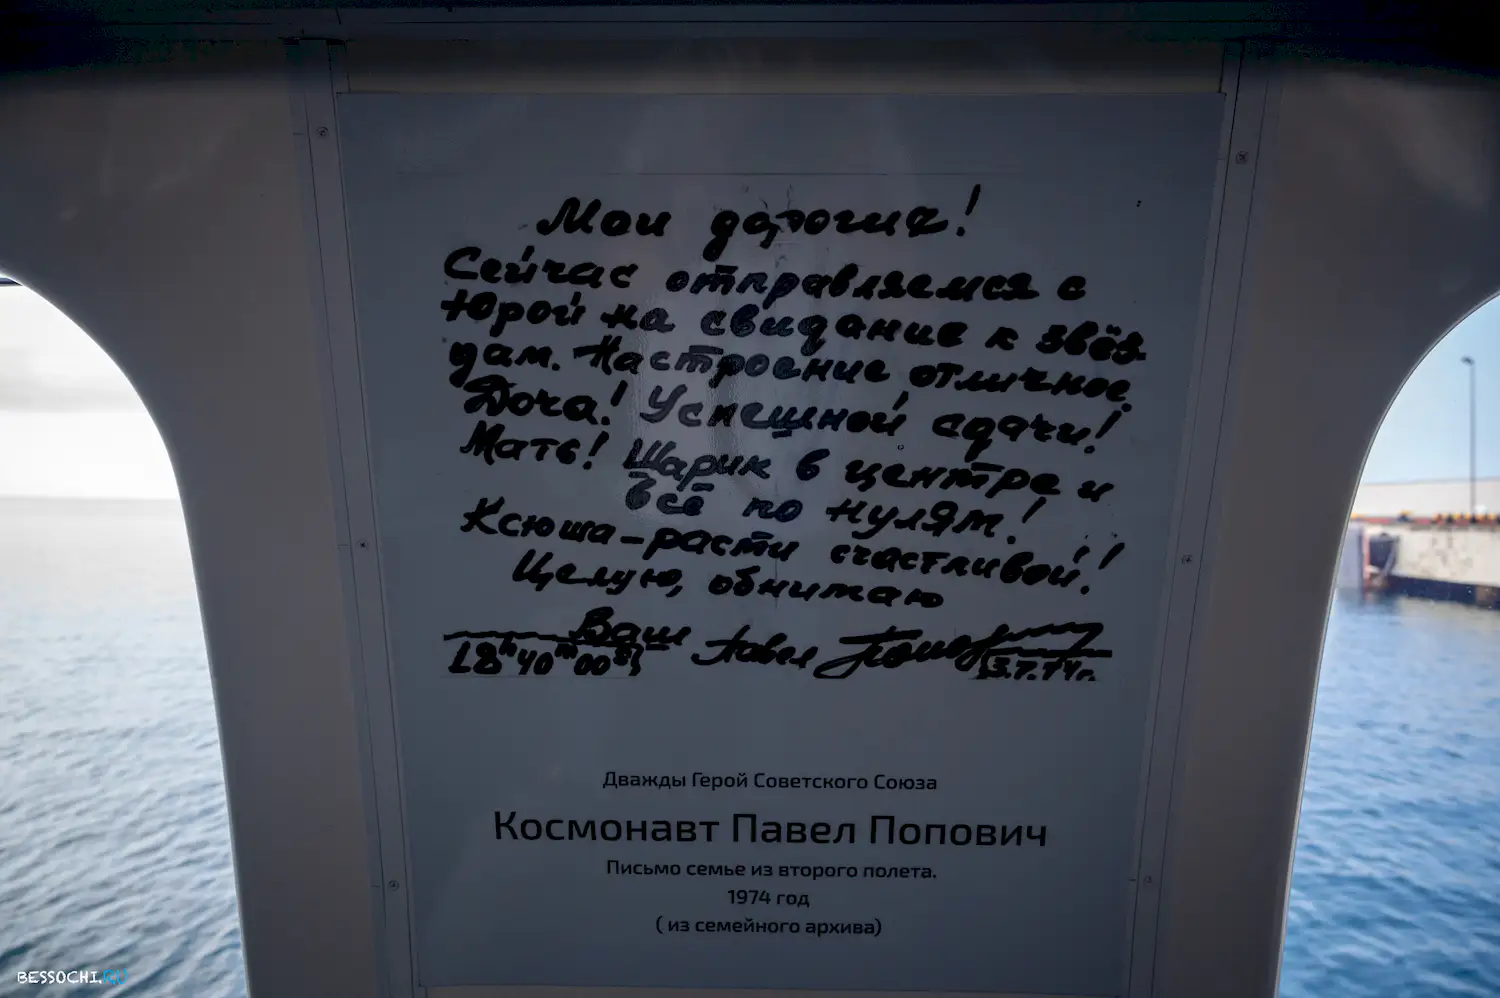 Мои дорогие!
Сейчас отправляемся с
Юрой на свидание к звёз-
дам. Настроение отличное.
Доча! Успешной сдачи!
Мать! Шарик в центре и
всё по нулям!
Ксюша – расти счастливой!
Целую, обнимаю
Ваш Павел Попович
18ч 40m 00s 3.7.74г.
Дважды Герой Советского Союза
Космонавт Павел Попович
Письмо семье из второго полета.
1974 год
( из семейного архива)
BESSOCHI.RU